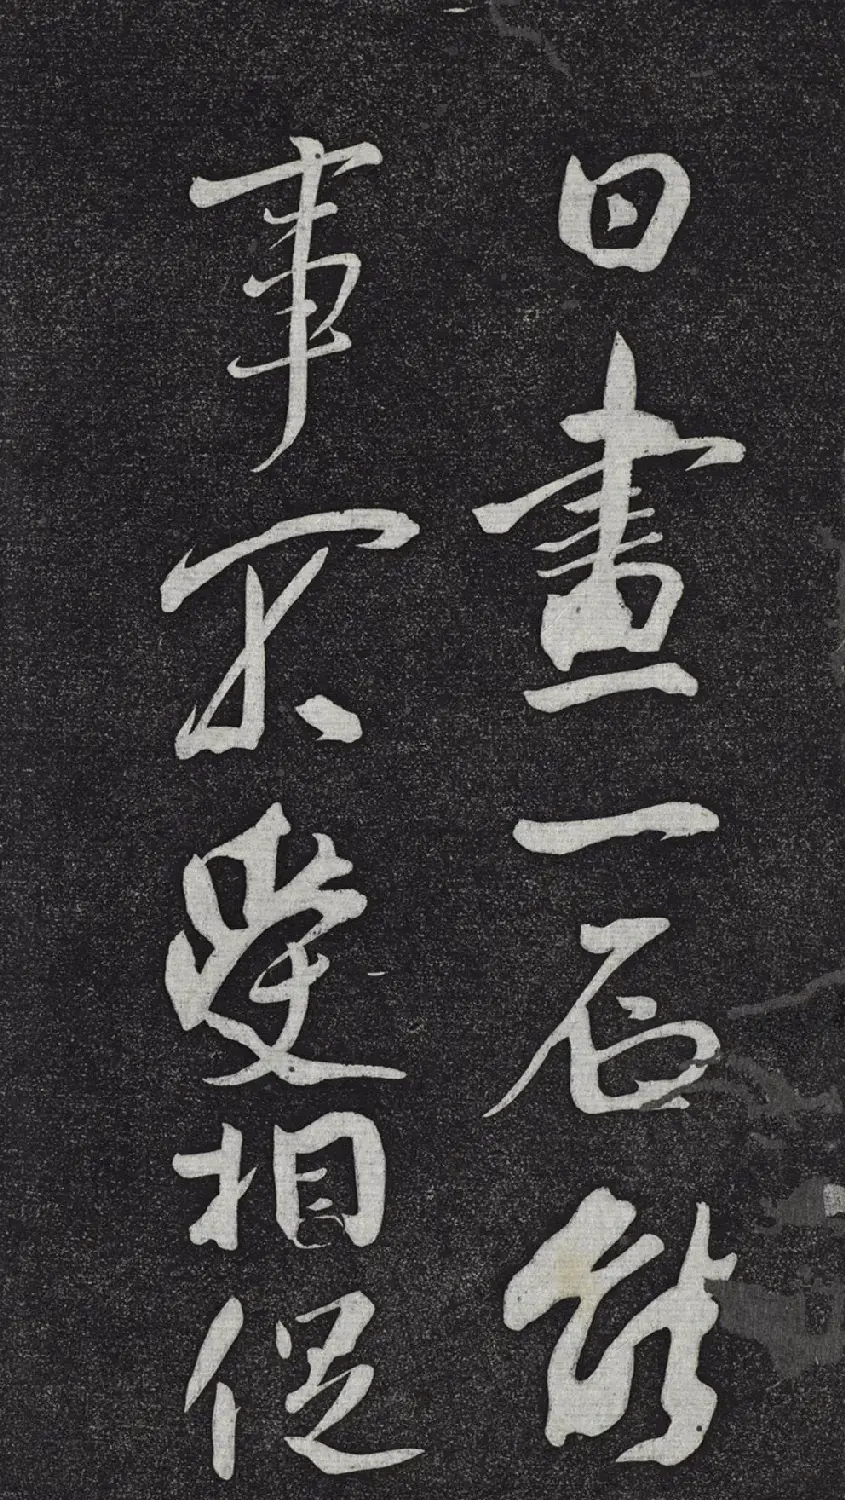 日畫一石能
事不受相促